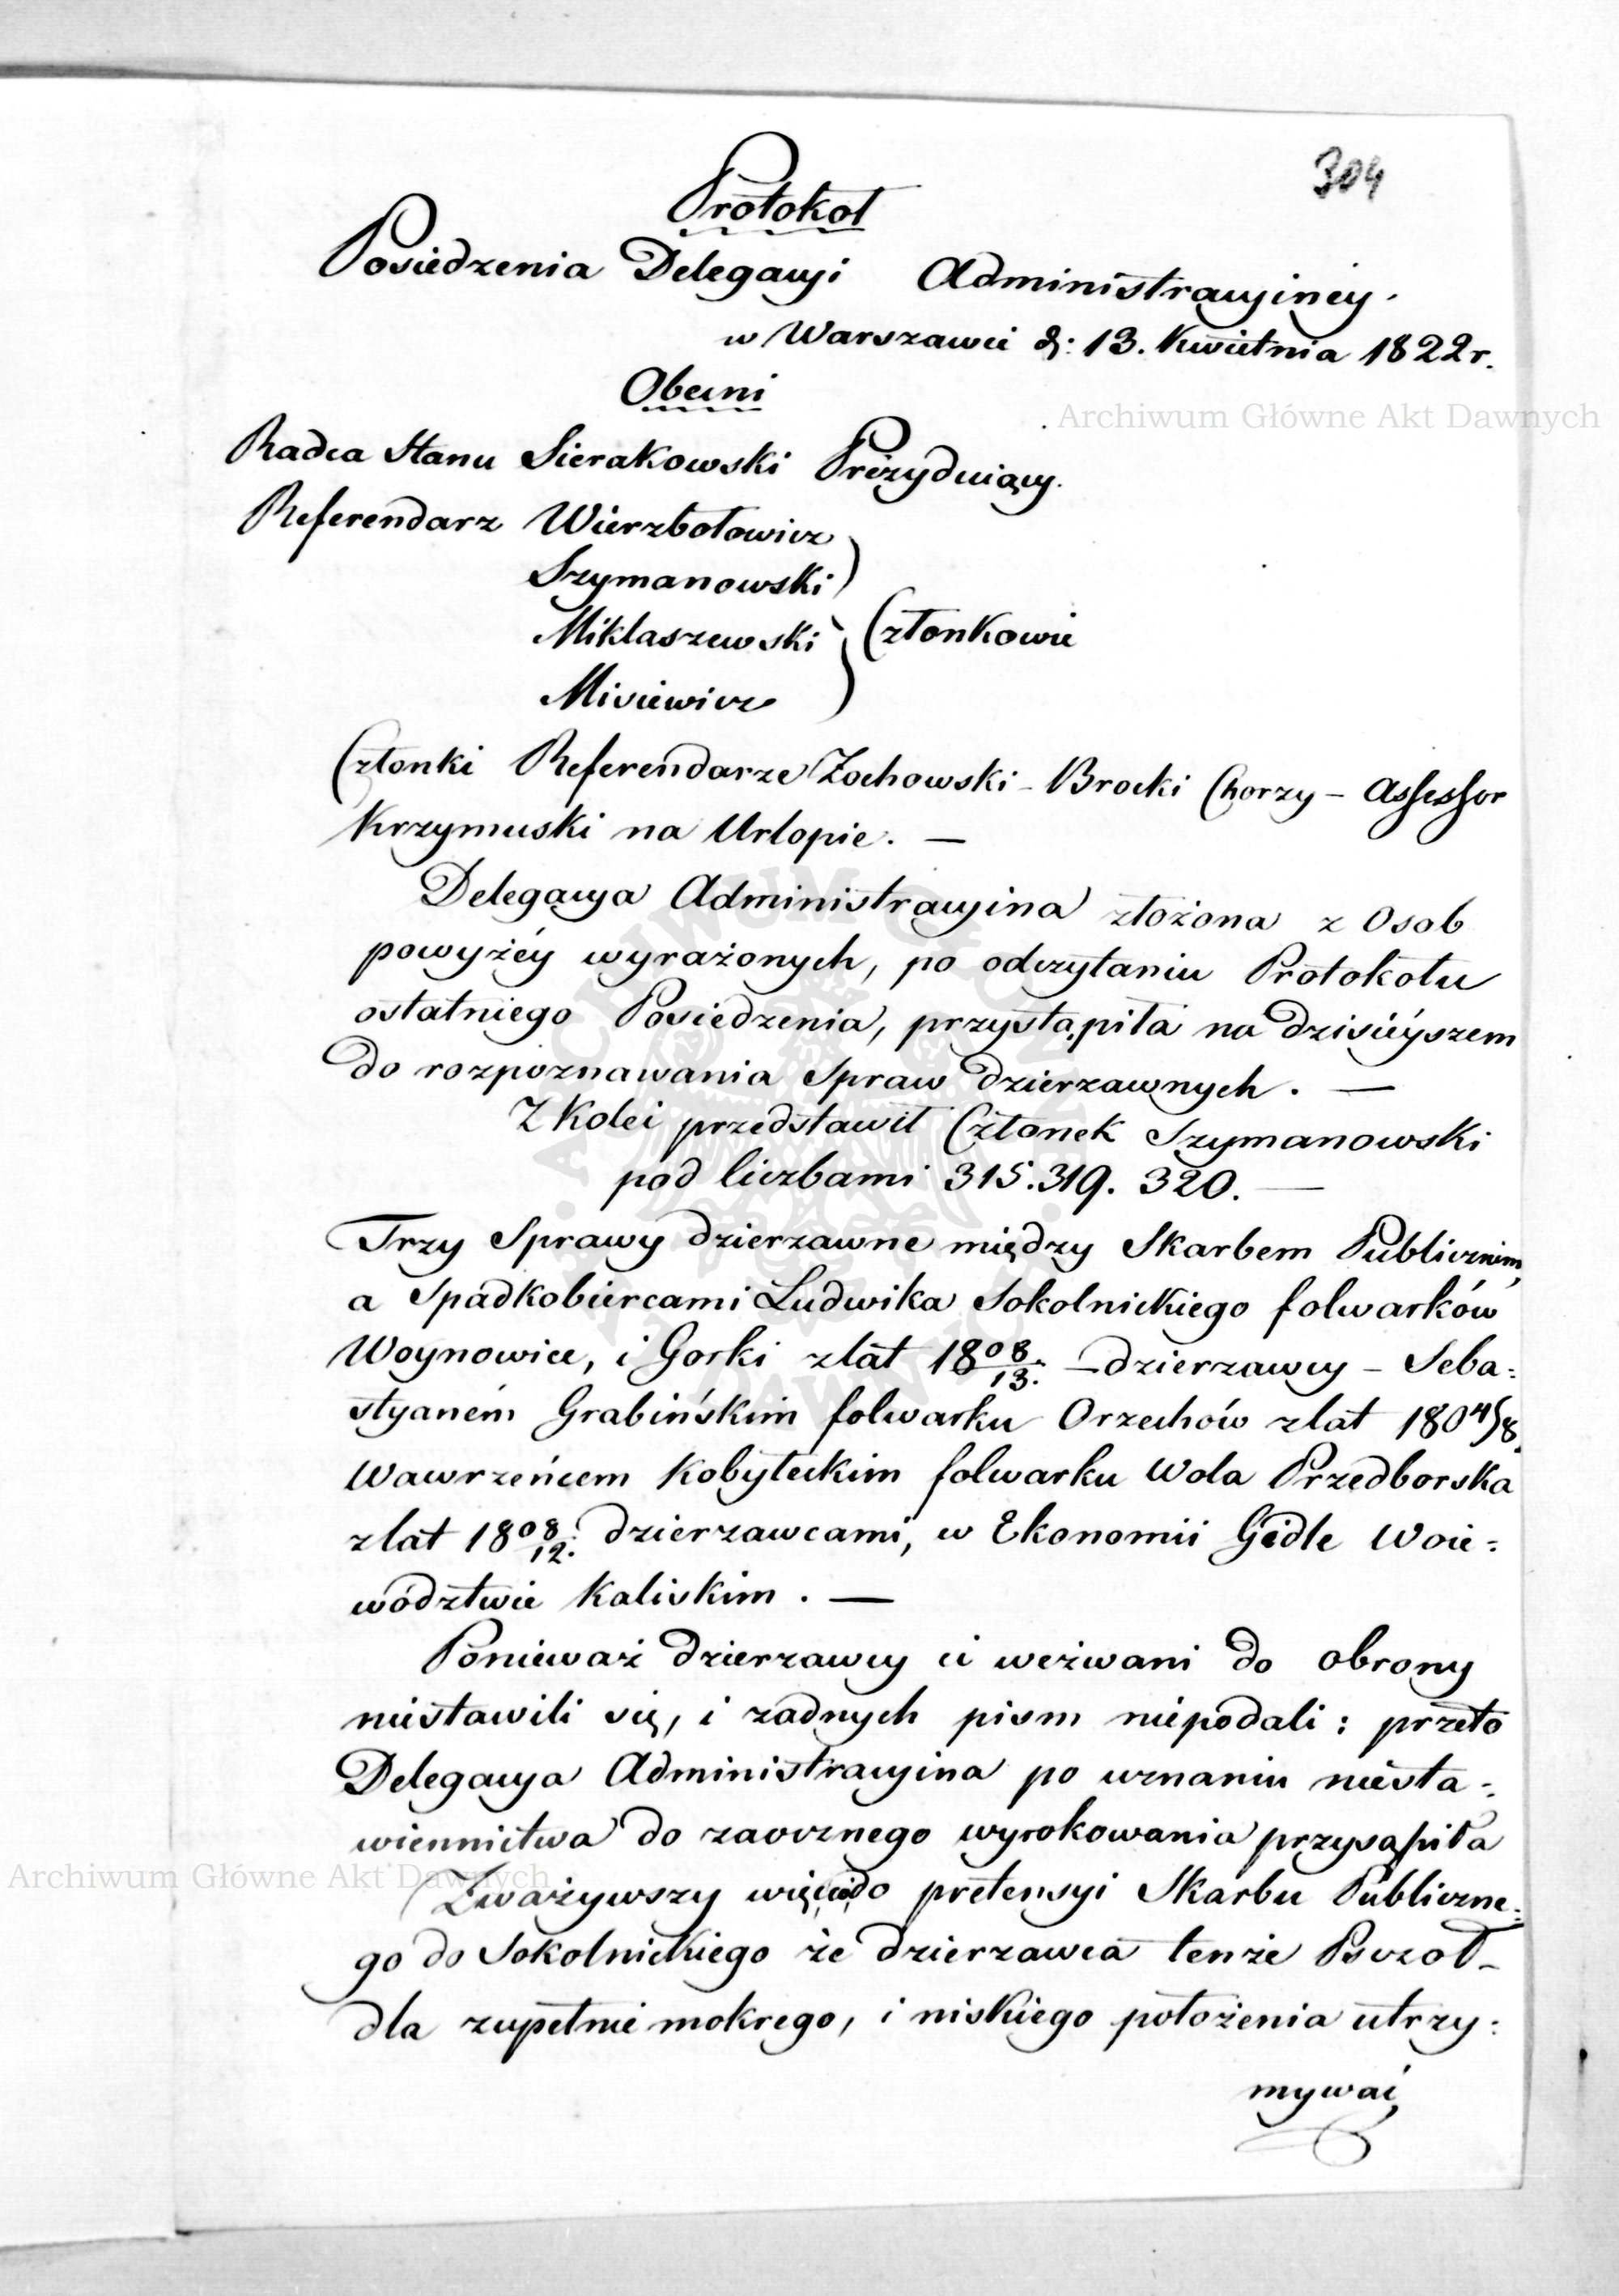 304
Protokoł
Posiedzenia Delegacyi Administracyiney.
w Warszawie d: 13. Kwietnia 1822 r.
Obecni
Radca Stanu Sierakowski Prezyduiący.
Referendarz Wierzbołowicz
Szymanowski
Miklaszewski
Członkowie
Misiewicz
Członki Referendarze Żochowski – Brocki Chorzy – Assessor
Krzymuski na Urlopie. —
Archiwum Główne Akt Dawnych
Delegacya Administracyina złożona z Osob
powyżéy wyrażonych, po odczytaniu Protokołu
ostatniego Posiedzenia, przystąpiła na dzisiéyszem
do rozpoznawania Spraw dzierzawnych. —
Z Kolei przedstawił Członek Szymanowski
pod liczbami 315. 319. 320. —
Trzy Sprawy dzierzawne między Skarbem Publicznim,
a Spadkobiercami Ludwika Sokolnickiego folwarków
Woynowice, i Gorki z lat 1808/13. – dzierzawcy – Seba:
styaném Grabińskim folwarku Orzechów z lat 1804/8,
Wawrzeńcem Kobyłeckim folwarku Wola Przedborska
z lat 1808/12. dzierzawcami, w Ekonomii Gidle Woie:
wództwie Kaliskim. —
Ponieważ dzierzawcy ci wezwani do obrony
niestawili się, i zadnych pism niepodali: przeto
Delegacya Administracyina po uznaniu niesta:
wiennictwa do zaocznego wyrokowania przysąpiła
Archiwum Główne Akt Dawnych
Zważywszy więc do pretensyi Skarbu Publiczne:
go do Sokolnickiego że dzierzawca tenże Pszczoł
dla zupełnie mokrego, i niskiego położenia utrzy:
mywać